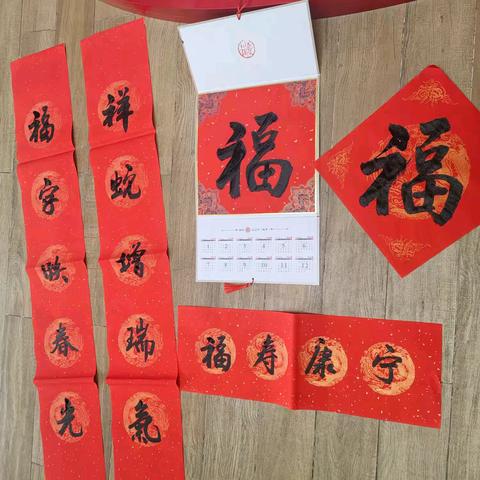 祥蛇增瑞氣
福字映春光
福
福
福寿康宁
1 2 3 4 5 6
7 8 9 10 11 12